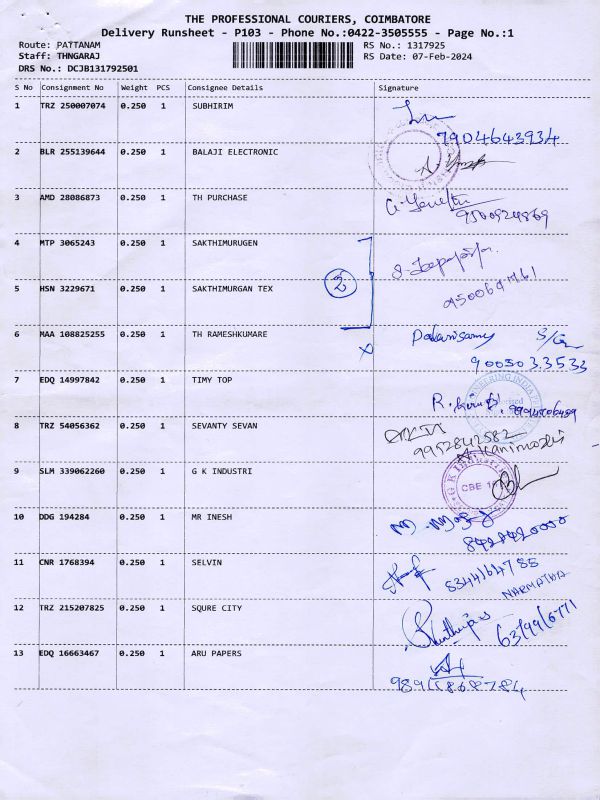 THE PROFESSIONAL COURIERS, COIMBATORE
Delivery Runsheet - P103 - Phone No.:0422-3505555 - Page No.:1
Route: PATTANAM RS No.: 1317925
Staff: THNGARAJ RS Date: 07-Feb-2024
DRS No.: DCJB131792501
S No Consignment No Weight PCS Consignee Details Signature
1 TRZ 250007074 0.250 1 SUBHIRIM
7904643934
2 BLR 255139644 0.250 1 BALAJI ELECTRONIC
3 AMD 28086873 0.250 1 TH PURCHASE
9500924869
4 MTP 3065243 0.250 1 SAKTHIMURUGEN
2
5 HSN 3229671 0.250 1 SAKTHIMURGAN TEX
6 MAA 108825255 0.250 1 TH RAMESHKUMARE Palanisamy
9003033533
7 EDQ 14997842 0.250 1 TIMY TOP
8 TRZ 54056362 0.250 1 SEVANTY SEVAN
9952842582
9 SLM 339062260 0.250 1 G K INDUSTRI
CBE
10 DDG 194284 0.250 1 MR INESH
8428420000
11 CNR 1768394 0.250 1 SELVIN
8344164788
NARMATHA
12 TRZ 215207825 0.250 1 SQURE CITY
6379916771
13 EDQ 16663467 0.250 1 ARU PAPERS